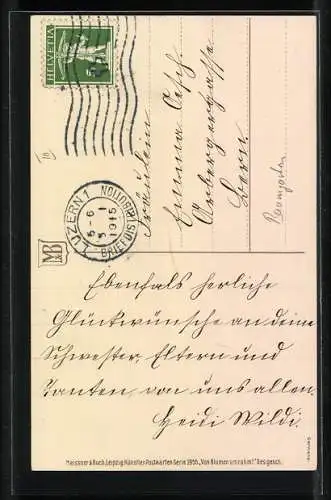 HELVETIA
LUZERN 1
5-6
5 I
1915
BRIEFDISTRIBUTION
Fräulein
Emma Oesch.
Aarbergergasse
Bern
MB
Ebenfals herliche
Glückwünsche an deine
Schwester, Eltern und
Tanten, von uns allen.
Heidi Wildi.
Meissner & Buch, Leipzig Künstler-Postkarten Serie 1955, "Von Blumen umrahmt" Ges. gesch.